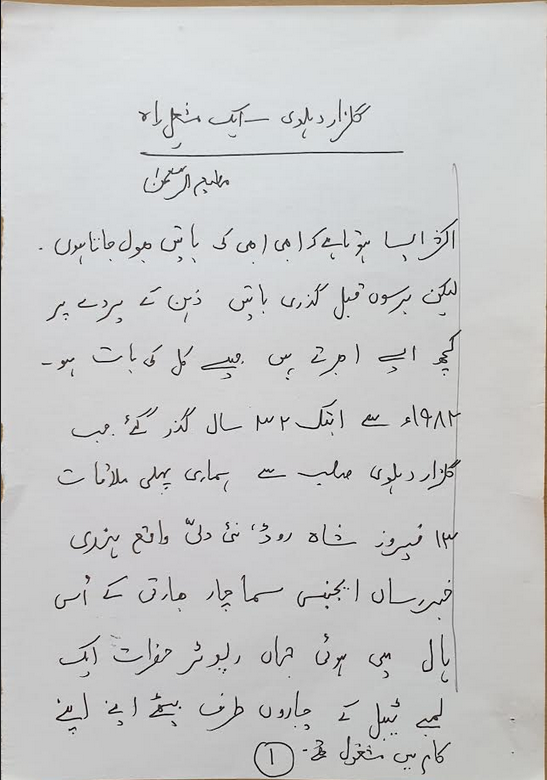 گلزار دہلوی ۔ ایک مشعل راہ
اکثر ایسا ہوتا ہے کہ ابھی ابھی کی باتیں بھول جاتا ہوں ۔
لیکن برسوں قبل گذری باتیں ذہن کے پردے پر
کچھ ایسے ابھرتے ہیں جیسے کل کی بات ہو ۔
۱۹۸۲ء سے ابتک ۳۲ سال گذر گئے جب
گلزار دہلوی صاحب سے ہماری پہلی ملاقات
۱۳ فیروز شاہ روڈ، نئی دلّی واقع ہندی
خبر رساں ایجنسی سماچار بھارتی کے اُس
ہال میں ہوئی جہاں رپوٹر حضرات ایک
لمبے ٹیبل کے چاروں طرف بیٹھے اپنے اپنے
کام میں مشغول تھے ۔
۱